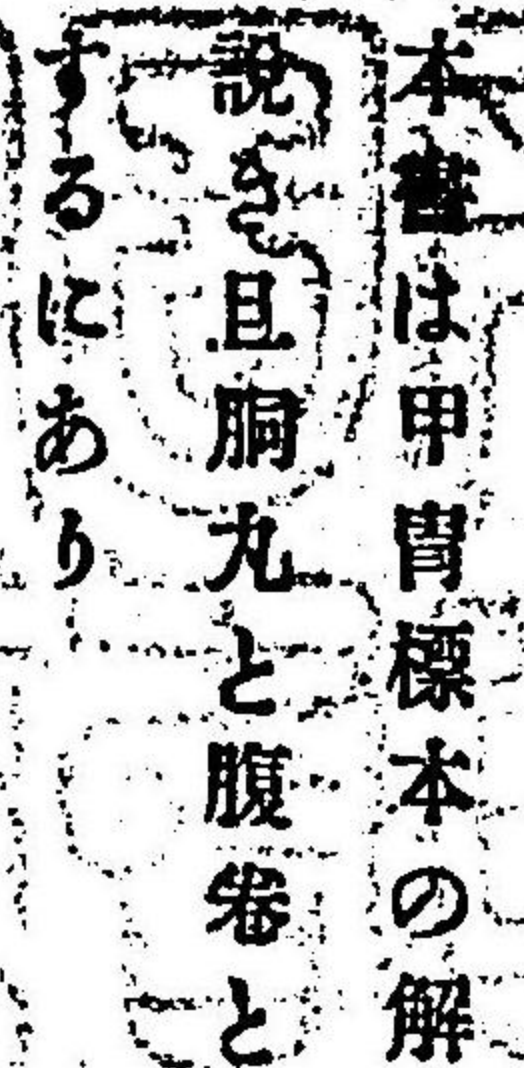 本書は甲冑標本の解
説き且胴丸と腹卷と
するにあり